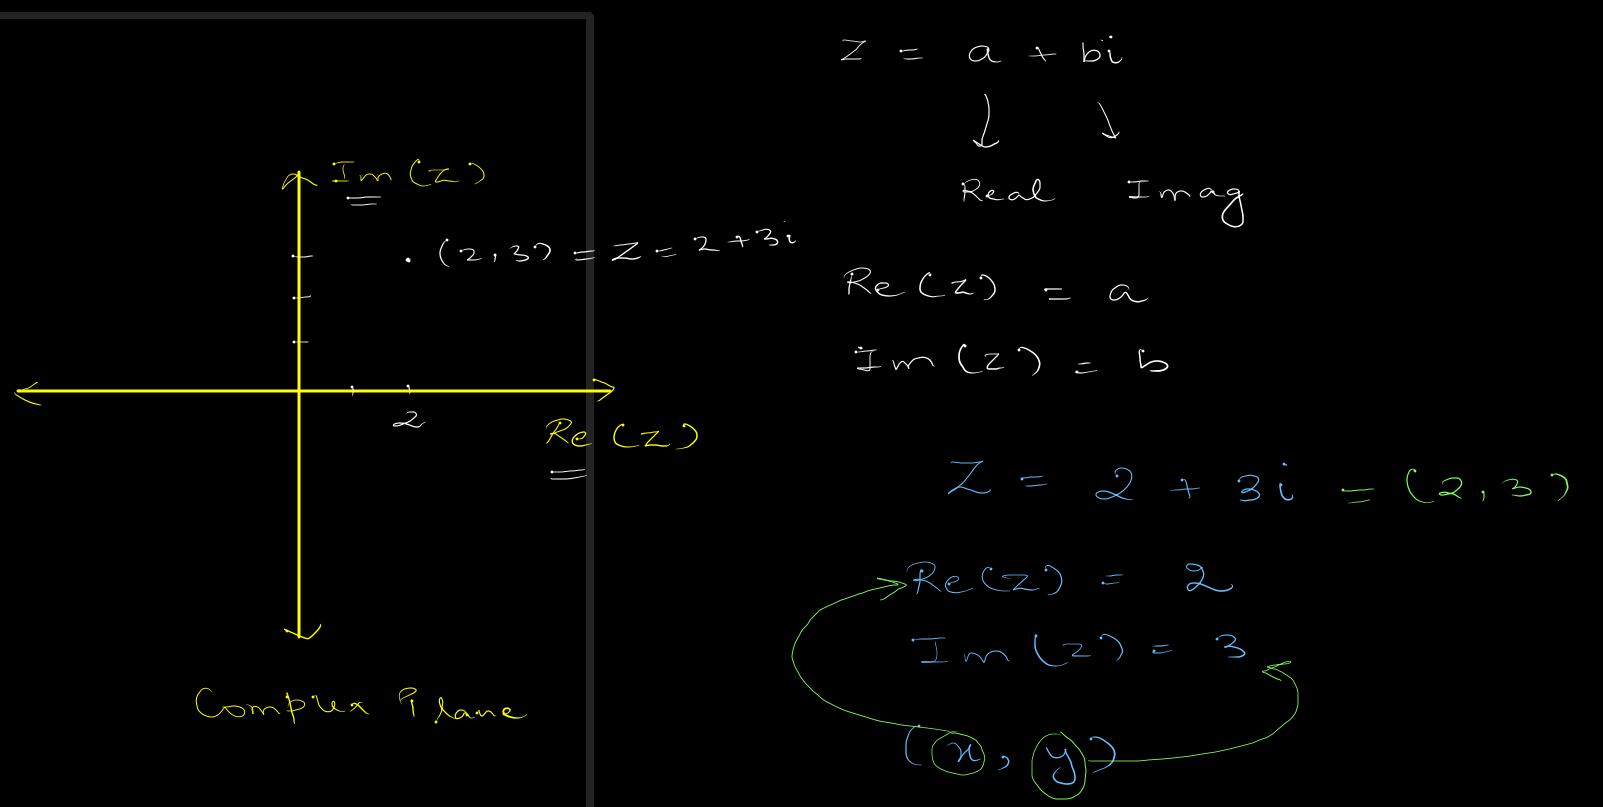 Im(z)
(2,3) = z = 2+3i
2
Re(z)
Complex Plane
z = a + bi
Real Imag
Re(z) = a
Im(z) = b
Z = 2 + 3i = (2,3)
Re(z) = 2
Im(z) = 3
(x, y)